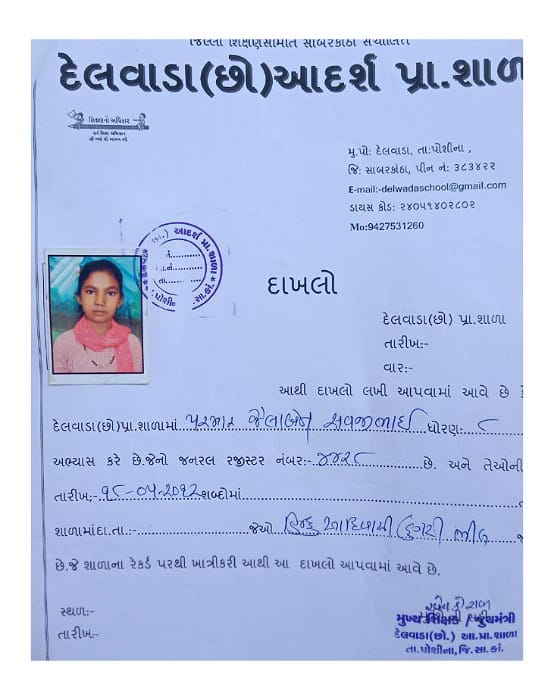 જિલ્લા શિક્ષણસમિતિ સાબરકાંઠા સંચાલિત
દેલવાડા(છો)આદર્શ પ્રા.શાળા
શિક્ષણનો અધિકાર
સર્વ શિક્ષા અભિયાન
મુ.પો: દેલવાડા, તા:પોશીના ,
જિ: સાબરકાંઠા, પીન નં: ૩૮૩૪૨૨
E-mail:-delwadaschool@gmail.com
ડાયસ કોડ: ૨૪૦૫૧૪૦૨૮૦૨
Mo:9427531260
આદર્શ પ્રા.શાળા
નં...........
તા...........
પોશી સા.કાં.
દાખલો
દેલવાડા(છો) પ્રા.શાળા
તારીખ:-
વાર:-
આથી દાખલો લખી આપવામાં આવે છે કે
દેલવાડા(છો)પ્રા.શાળામાં પરમાર સવજીભાઈ ધોરણ: ૮
અભ્યાસ કરે છે.જેનો જનરલ રજીસ્ટર નંબર:- ૪૪૨૮ છે. અને તેઓની
તારીખ;- ૧૮-૦૫-૨૦૧૨ શબ્દોમાં
શાળામાંદા.તા.:- જેઓ હિન્દુ આદિવાસી ડુંગરી ભીલ
છે.જે શાળાના રેકર્ડ પરથી ખાત્રીકરી આથી આ દાખલો આપવામાં આવે છે.
સ્થળ:-
તારીખ:-
મુખ્ય શિક્ષક /
દેલવાડા(છો.) આ.પ્રા.શાળા
તા.પોશીના,જિ.સા.કાં.